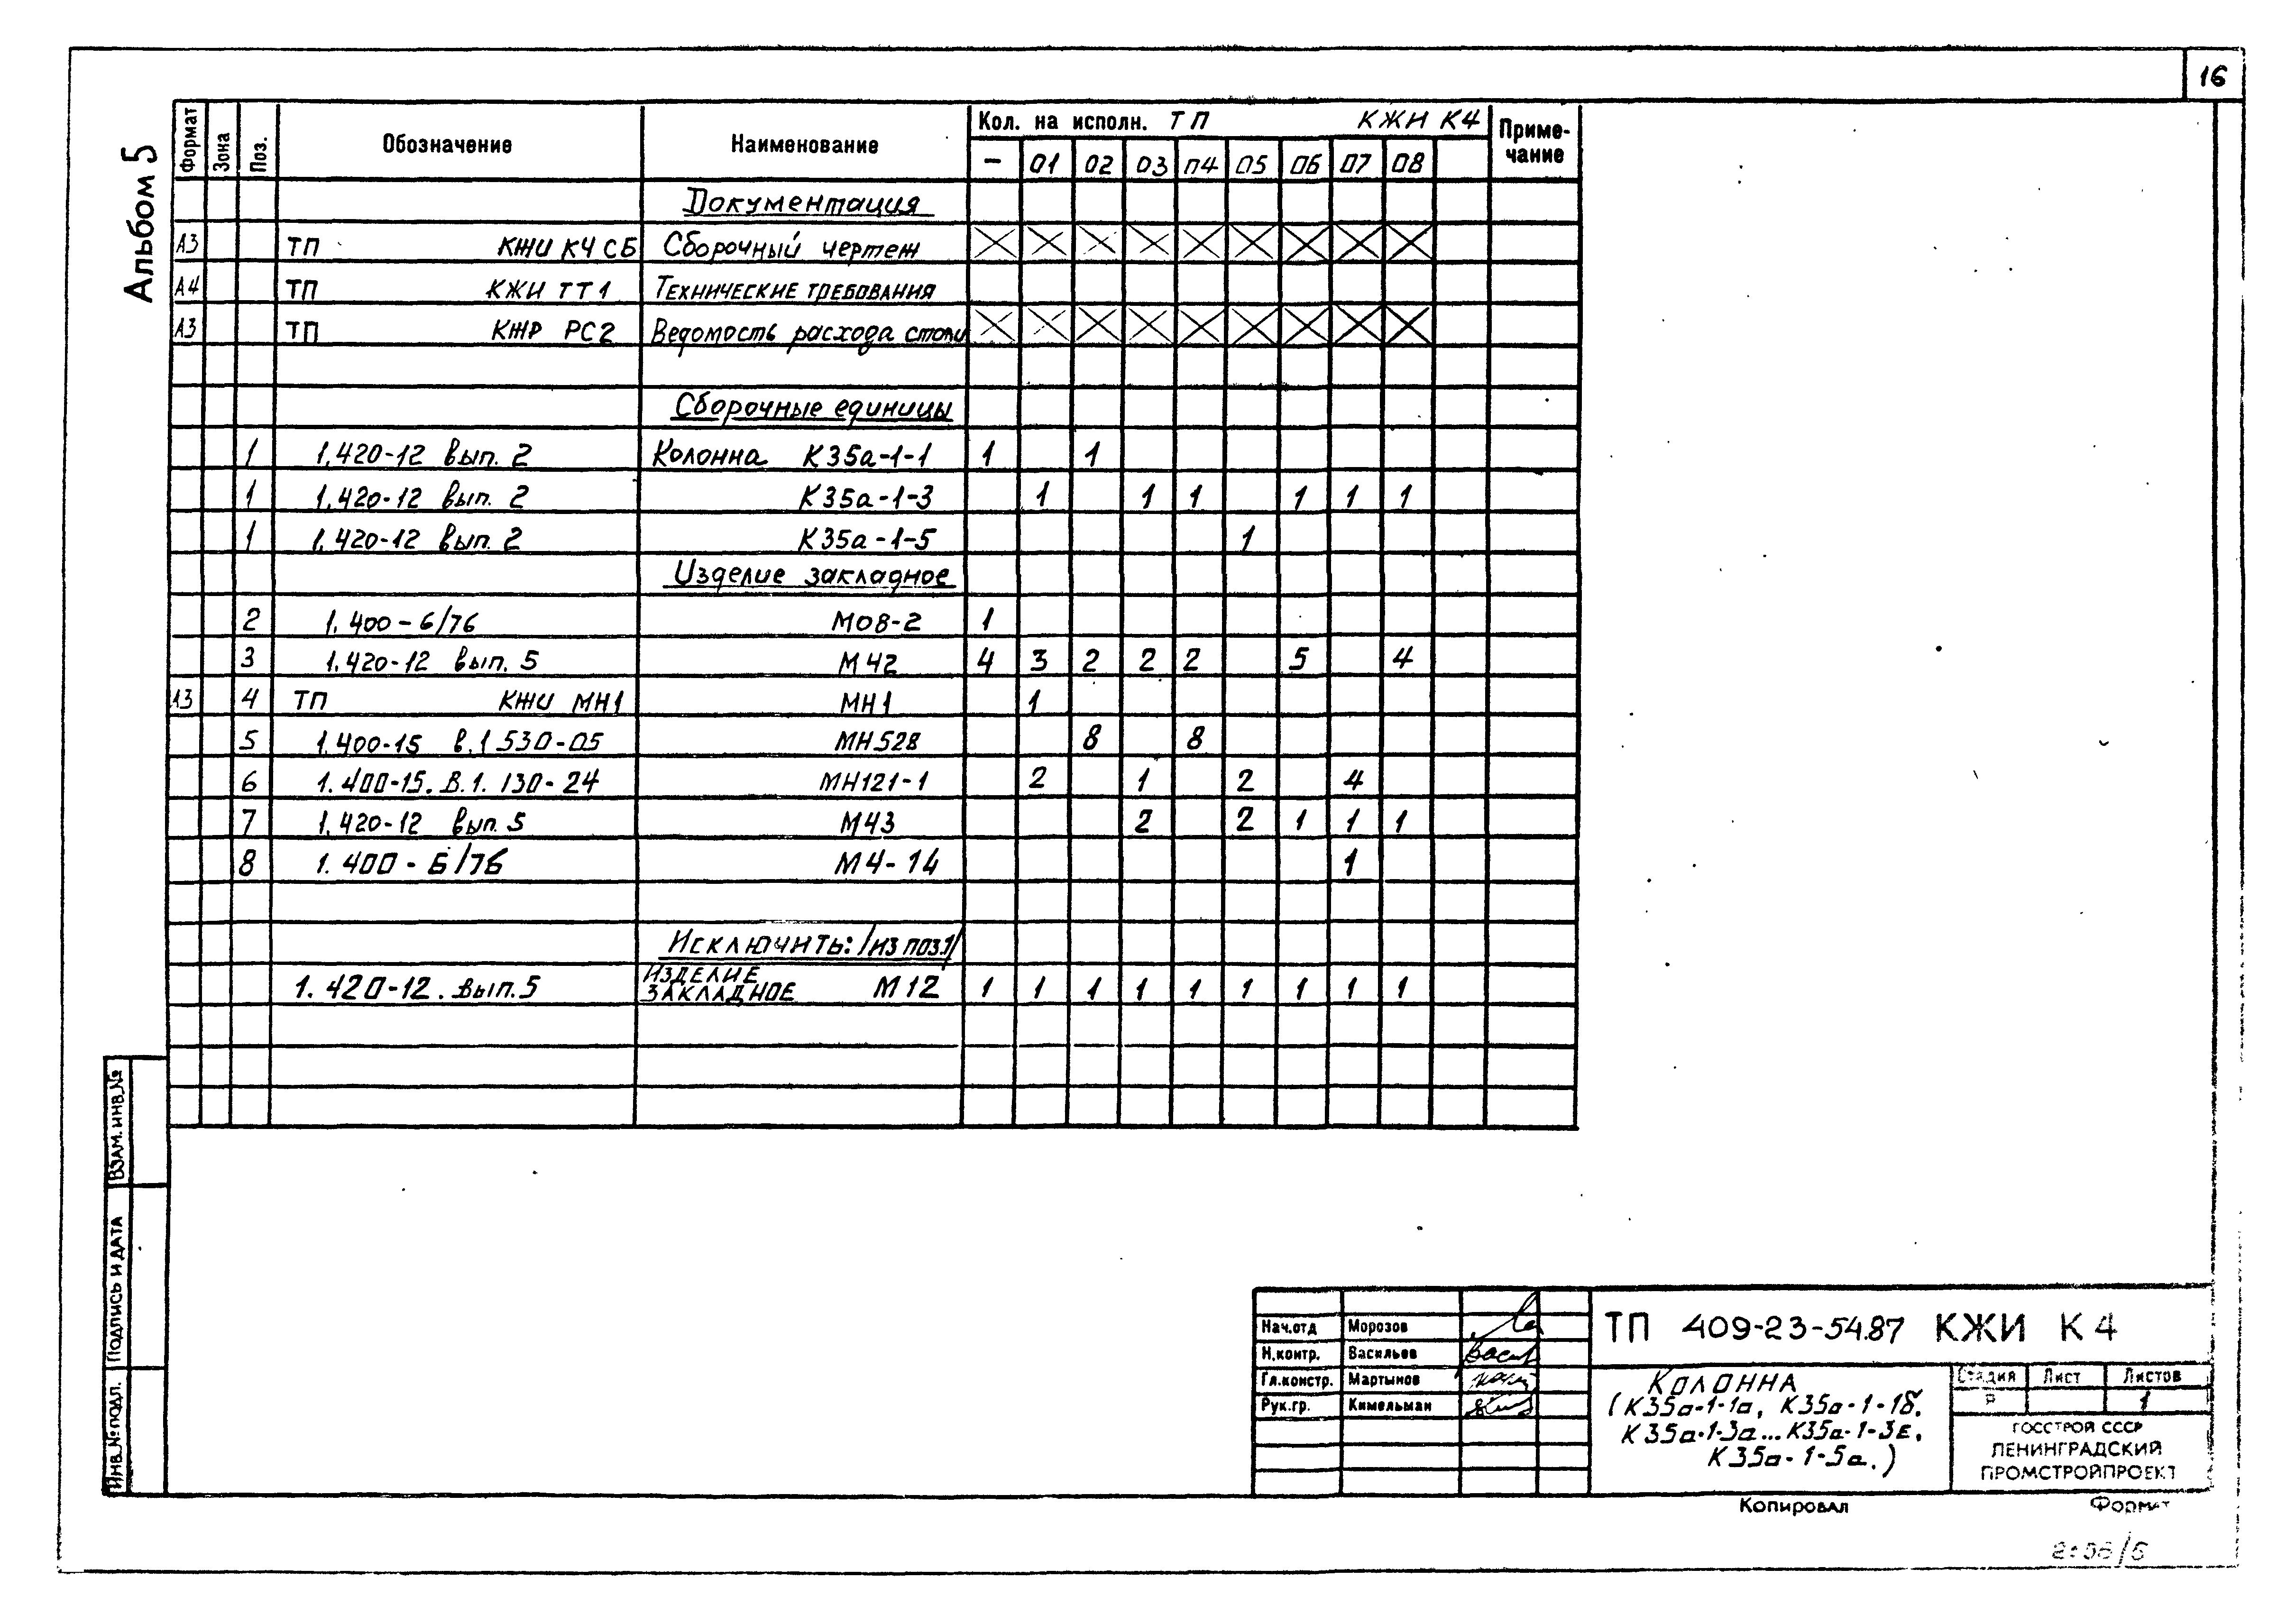 16
Альбом 5
Формат Зона Поз. Обозначение Наименование Кол. на исполн. ТП КЖИ К4 Приме-
чание
– 01 02 03 04 05 06 07 08
Документация
А3 ТП КЖИ К4 СБ Сборочный чертеж
А4 ТП КЖИ ТТ1 Технические требования
А3 ТП КЖР РС2 Ведомость расхода стали
Сборочные единицы
1 1.420-12 вып. 2 Колонна К35а-1-1 1 1
1 1.420-12 вып. 2 К35а-1-3 1 1 1 1 1 1
1 1.420-12 вып. 2 К35а-1-5 1
Изделие закладное
2 1.400-6/76 М08-2 1
3 1.420-12 вып. 5 М42 4 3 2 2 2 5 4
А3 4 ТП КЖИ МН1 МН1 1
5 1.400-15 в.1 530-05 МН528 8 8
6 1.400-15. В.1. 130-24 МН121-1 2 1 2 4
7 1.420-12 вып. 5 М43 2 2 1 1 1
8 1.400-6/76 М4-14 1
Исключить: /из поз.1/
1.420-12. вып. 5 Изделие
закладное М12 1 1 1 1 1 1 1 1 1
Взам. инв. №
Подпись и дата
Инв. № подл.
Нач.отд Морозов
Н.контр. Васильев
Гл.констр. Мартынов
Рук.гр. Кимельман
ТП 409-23-54.87 КЖИ К4
Колонна
(К35а-1-1а, К35а-1-1б,
К35а-1-3а...К35а-1-3е,
К35а-1-5а.)
Стадия Лист Листов
Р 1
ГОССТРОЙ СССР
ЛЕНИНГРАДСКИЙ
ПРОМСТРОЙПРОЕКТ
Копировал Формат